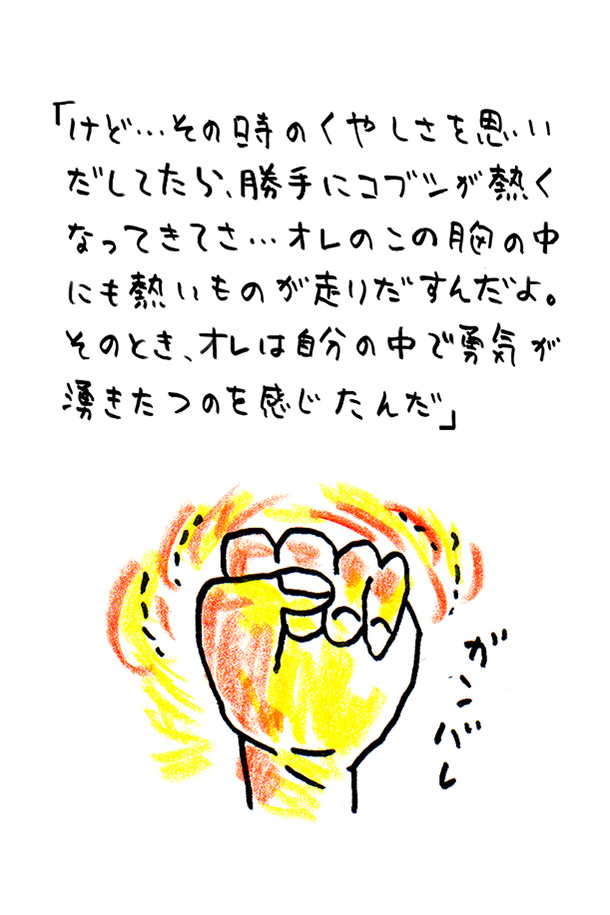 「けど…その時のくやしさを思い
だしてたら、勝手にコブシが熱く
なってきてさ…オレのこの胸の中
にも熱いものが走りだすんだよ。
そのとき、オレは自分の中で勇気が
湧きたつのを感じたんだ」
ガンバレ